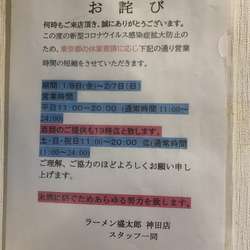 お詫び
何時もご来店頂き、誠にありがとうございます。
この度の新型コロナウイルス感染症拡大防止の
ため、東京都の休業要請に応じ下記の通り営業
時間の短縮をさせていただきます。
期間 1/8日(金)～2/7日(日)
営業時間
平日11:00～20:00 (通常時間 11:00～
24:00)
酒類のご提供も19時迄と致します。
土・日・祝日11:00～20:00 迄(通常時間
11:00～24:00)
ご理解、ご協力のほどよろしくお願い申し
上げます。
お客に於てためあらゆる努力を致します。
ラーメン盛太郎 神田店
スタッフ一同